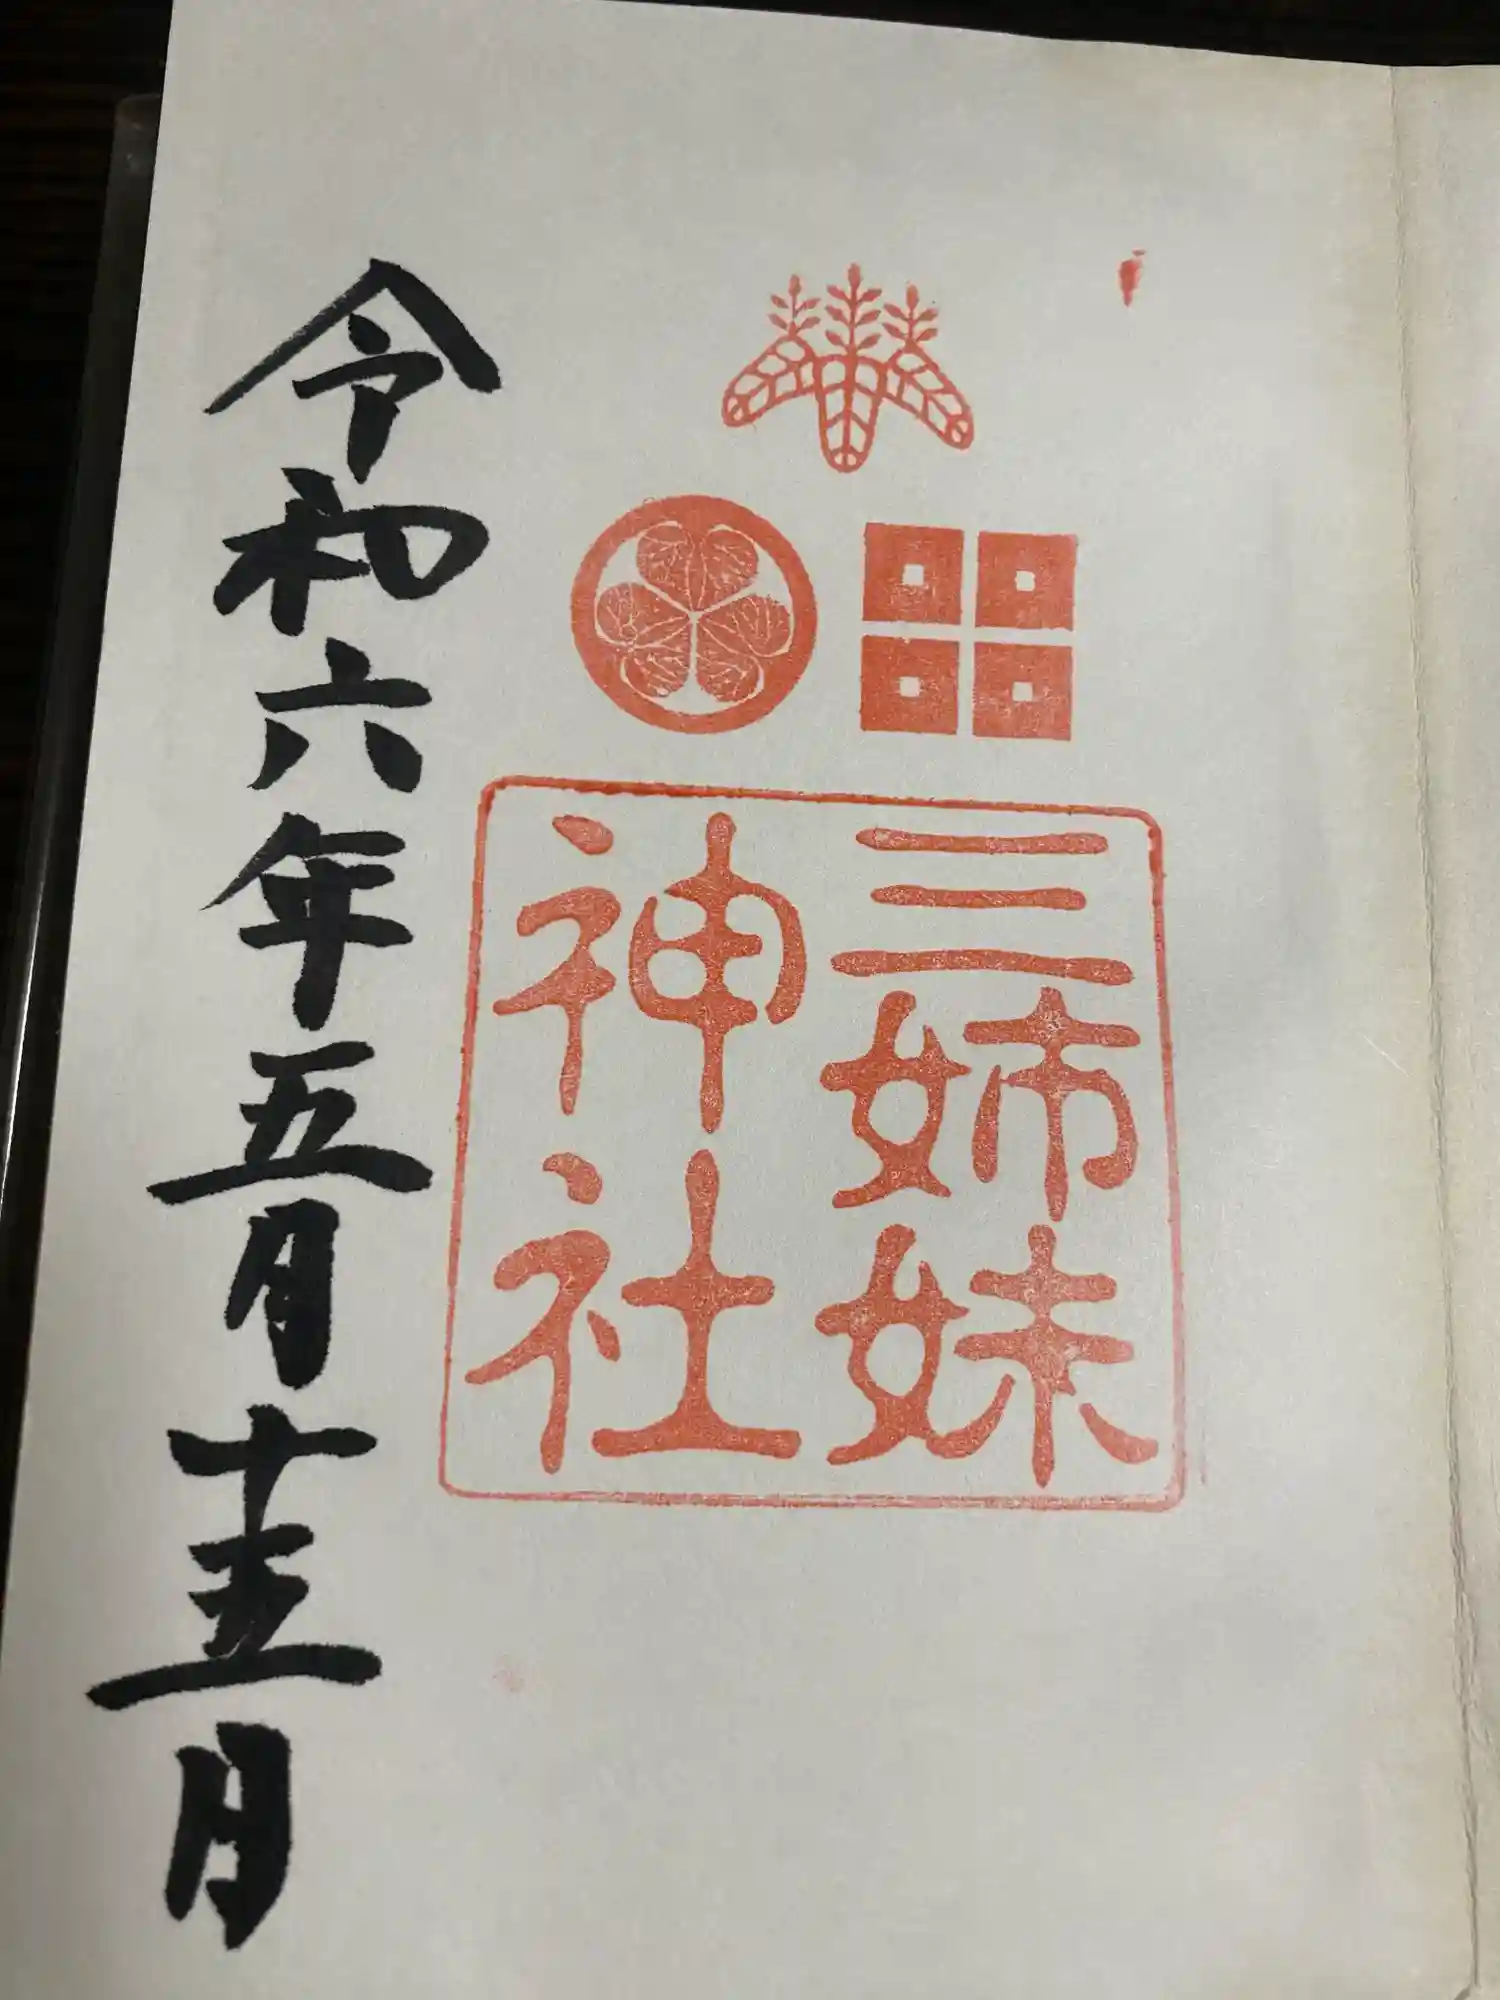 三姉妹
神社
令和六年五月十五日